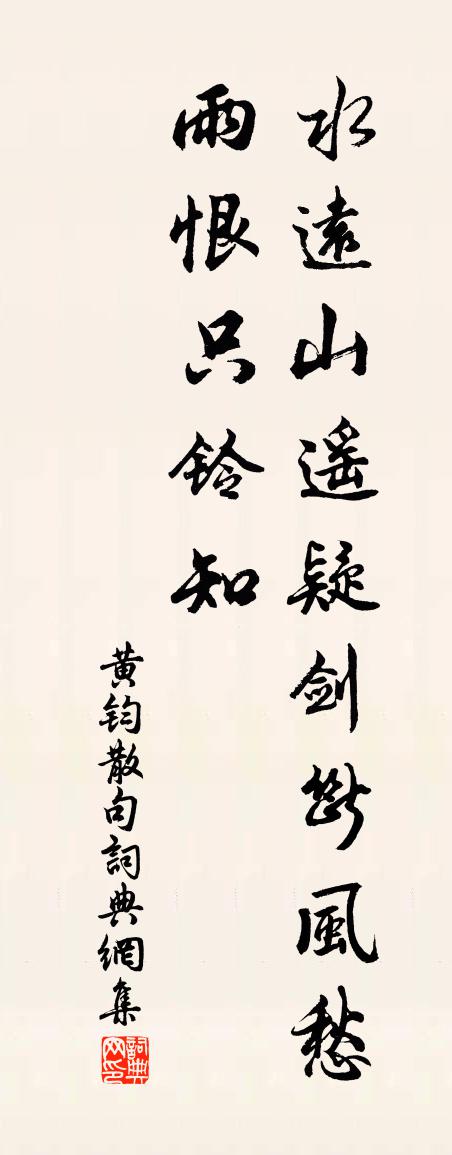 水遠山遥疑劍斷風愁
雨恨只鈴知
黄鈞散句詞典網集
詞典网印